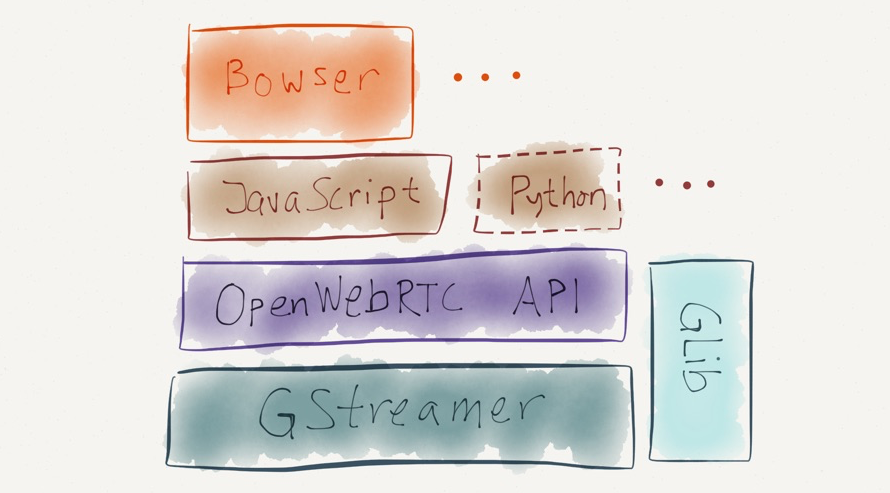 Bowser
JavaScript
Python
OpenWebRTC API
GLib
GStreamer